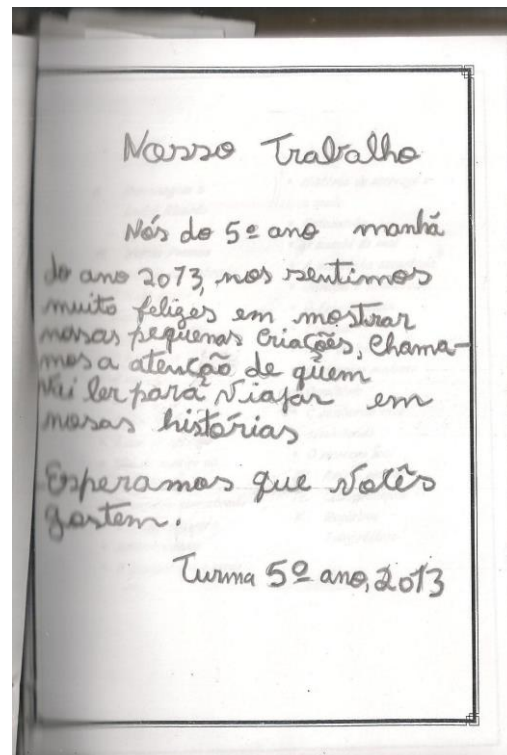 Nosso Trabalho
Nós do 5º ano manhã
do ano 2013, nos sentimos
muito felizes em mostrar
nossas pequenas criações, Chama-
mos a atenção de quem
vai ler para viajar em
nossas histórias
Esperamos que vocês
gostem.
Turma 5º ano, 2013